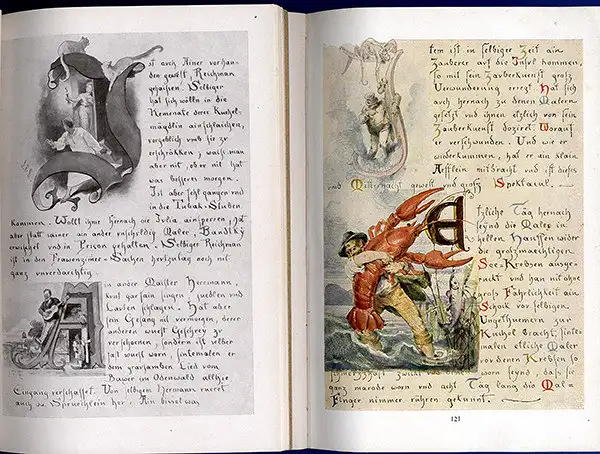 ist auch Ainer vorhan-
den gewest, Reichman
gehaissen. Selbiger
hat sich wölln in die
Kemenate derer Kuchel-
mägdlin ainschlaichen,
vorgeblich umb sie zu
erschräkken; waiss man
aber nit, ob er nit hat
was besseres moegen.
Ist aber fehl gangen und
in die Tubak-Stuben
kommen. Wollt ihme hernach die Julia ainsperren, hat
aber statt sainer ain ander unschuldig Maler, Bandlky
erwischet und in Prison gehalten. Selbiger Reichman
ist in den Frawenzimer-Sachen hertzutag noch nit
ganz unverdachtig.
in ander Maister Herrmann,
kunt gar fain singen, jueblen und
Lauten schlagen. Hat aber
sein Gesang nit vermoegen, derer
anderen wuest Geschrey zu
verschoenen, sondern ist selber
fast wuest worn, sintemalen er
dem grausamben Lied vom
Bawer im Odenwald allhie
Eingang verschaffet. Von selbigem Herrmann rueret
auch das Spruechlein her: Ain bissel was
tem ist in selbiger Zeit ain
Zauberer auf die Insul kommen,
so mit sein Zauberkunst gross
Verwunderung erregt. Hat sich
auch hernach zu denen Malern
gesetzt und ihnen etzlich von sein
Zauberkunst doziret. Worauf
er verschwunden. Und wie er
widerkummen, hat er ain klain
Aefflein mitbracht und ist dieses
umb Mitternacht gewest und gross Spektacul.
Etzliche Täg hernach
seynd die Maler in
hellen Hauffen wider
die grossmaechtigen
See-Krebsen ausge-
ruckt und han nit ohne
gross Fährlichkeit ain
Schok vor selbigen
Ungethuemen zur
Kuchel bracht, sinte-
malen etliche Maler
von denen Krebsen so
worn seynd, dass sie
ganz marode worn und acht Täg lang die Mal-
Finger nimmer rühren gekunnt.
121